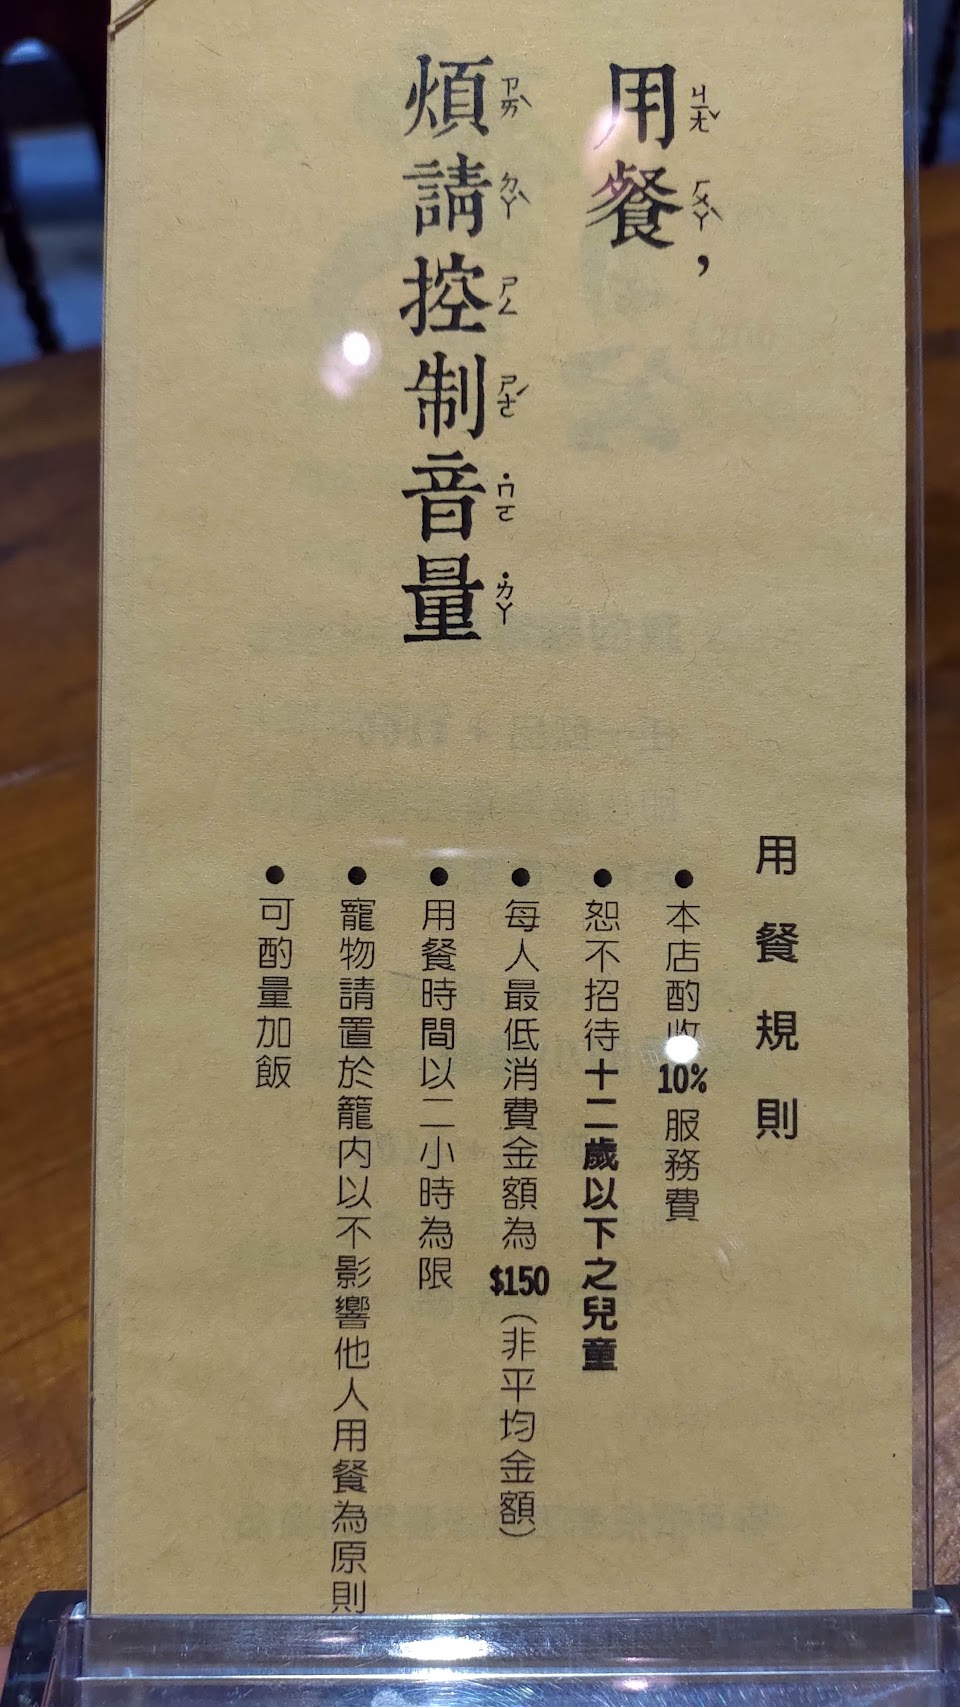 用餐，
ㄐㄧㄤˇ ㄏㄨㄚˋ
煩請控制音量
ㄗㄞˋ ㄉㄚˋ ㄕㄥ ㄕㄜˊ ˙ㄇㄜ ˙ㄌㄚ
用餐規則
●本店酌收10%服務費
●恕不招待十二歲以下之兒童
●每人最低消費金額為$150（非平均金額）
●用餐時間以二小時為限
●寵物請置於籠內以不影響他人用餐為原則
●可酌量加飯